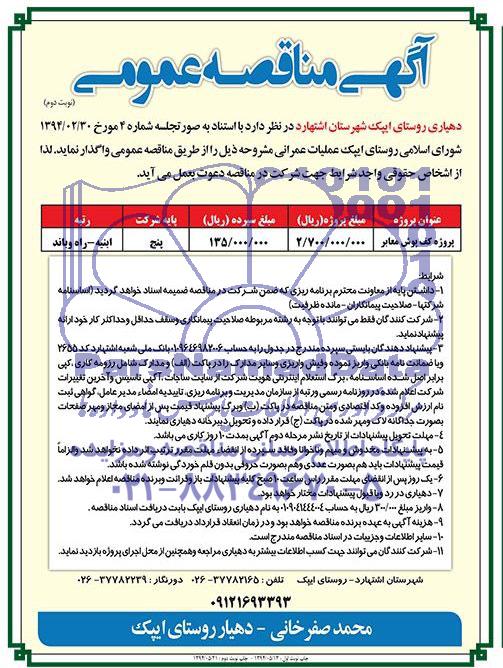 آگهی مناقصه عمومی
(نوبت دوم)
دهیاری روستای ایپک شهرستان اشتهارد در نظر دارد با استناد به صورتجلسه شماره ۴ مورخ ۱۳۹۴/۰۲/۳۰
شورای اسلامی روستای ایپک عملیات عمرانی مشروحه ذیل را از طریق مناقصه عمومی واگذار نماید. لذا
از اشخاص حقوقی واجد شرایط جهت شرکت در مناقصه دعوت بعمل می آید.
عنوان پروژه مبلغ پروژه(ریال) مبلغ سپرده (ریال) پایه شرکت رتبه
پروژه کف پوش معابر ۲/۷۰۰/۰۰۰/۰۰۰ ۱۳۵/۰۰۰/۰۰۰ پنج ابنیه-راه وباند
شرایط:
۱- داشتن پایه از معاونت محترم برنامه ریزی که ضمن شرکت در مناقصه ضمیمه اسناد خواهد گردید (اساسنامه
شرکتها- صلاحیت پیمانکاران - مانده ظرفیت)
۲- شرکت کنندگان فقط می توانند با توجه به رشته مربوطه صلاحیت پیمانکاری وسقف حداقل وحداکثر کار خود ارائه
پیشنهاد نماید.
۳- پیشنهاد دهندگان بایستی سپرده مندرج در جدول را به حساب ۰۱۰۹۶۴۶۹۸۲۰۰۶ بانک ملی شعبه اشتهارد کد ۲۶۵۵
ویا ضمانت نامه بانکی واریز نموده وفیش واریزی وسایر مدارک را در پاکت (الف) و مدارک شامل رزومه کاری، کپی
برابر اصل شده اساسنامه ، برگ استعلام اینترنتی هویت شرکت از سایت ساجات، آگهی تاسیس و آخرین تغییرات
شرکت اعلام شده در روزنامه رسمی ورتبه از سازمان مدیریت و برنامه ریزی، تاییدیه امضاء مدیر عامل، گواهی ثبت
نام ارزش افزوده و کد اقتصادی ومتن مناقصه در پاکت (ب) وبرگ پیشنهاد قیمت پس از امضای مجاز ومهر صفحات
بصورت جداگانه لاک ومهر شده در پاکت (ج) قرار داده و تحویل دبیرخانه دهیاری نمایند.
۴- مهلت تحویل پیشنهادات از تاریخ نشر مرحله دوم آگهی بمدت ۱۰ روز کاری می باشد.
۵- به پیشنهادات مخدوش ومبهم وناخوانا وفاقد سپرده از انقضای مهلت مقرر ترتیب اثر داده نخواهد شد والزاماً
قیمت پیشنهادات باید هم بصورت عددی وهم بصورت حروفی بدون قلم خوردگی نوشته شده باشد.
۶- یک روز پس از انقضای مهلت مقرر راس ساعت ۱۰ صبح کلیه پیشنهادات باز وقرائت وبرنده مناقصه اعلام خواهد شد.
۷- دهیاری در رد ویا قبول پیشنهادات مختار خواهد بود.
۸- واریز مبلغ ۳۰۰/۰۰۰ ریال به حساب ۰۱۰۹۰۴۱۴۴۴۰۰۴ به نام دهیاری روستای ایپک بابت دریافت اسناد مناقصه.
۹- هزینه آگهی به عهده برنده مناقصه خواهد بود و در زمان انعقاد قرارداد دریافت می گردد.
۱۰- سایر اطلاعات وجزییات در اسناد مناقصه مندرج است.
۱۱- شرکت کنندگان می توانند جهت کسب اطلاعات بیشتر به دهیاری مراجعه وهمچنین از محل اجرای پروژه بازدید نماید.
شهرستان اشتهارد- روستای ایپک تلفن : ۳۷۷۸۲۱۶۵- ۰۲۶ دورنگار : ۳۷۷۸۲۲۳۹- ۰۲۶
۰۹۱۲۱۶۹۳۳۹۳
محمد صفرخانی - دهیار روستای ایپک
چاپ نوبت اول : ۱۳۹۴/۰۵/۱۳ - چاپ نوبت دوم : ۱۳۹۴/۰۵/۲۱
ParsNamadData
پایگاه اطلاع رسانی مناقصه و مزایده
۰۲۱-۸۸۳۴۹۶۷۰-۵